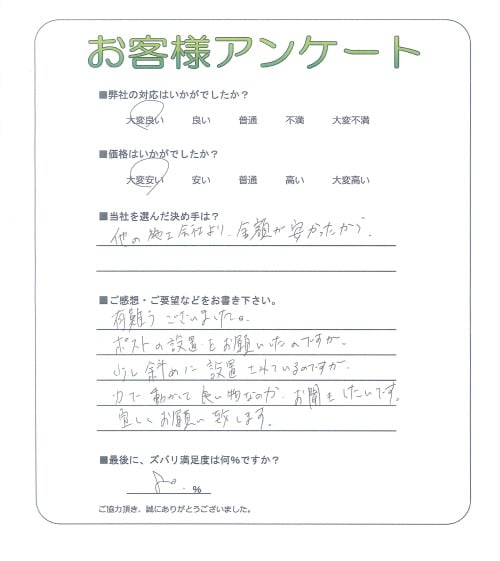 お客様アンケート
■弊社の対応はいかがでしたか？
大変良い 良い 普通 不満 大変不満
■価格はいかがでしたか？
大変安い 安い 普通 高い 大変高い
■当社を選んだ決め手は？
他の施工会社より、金額が安かったから。
■ご感想・ご要望などをお書き下さい。
有難うございました。
ポストの設置をお願いしたのですが、
少し斜めに設置されているのですが、
動かして良い物なのか、お聞きしたいです。
宜しくお願い致します。
■最後に、ズバリ満足度は何%ですか？
%
ご協力頂き、誠にありがとうございました。